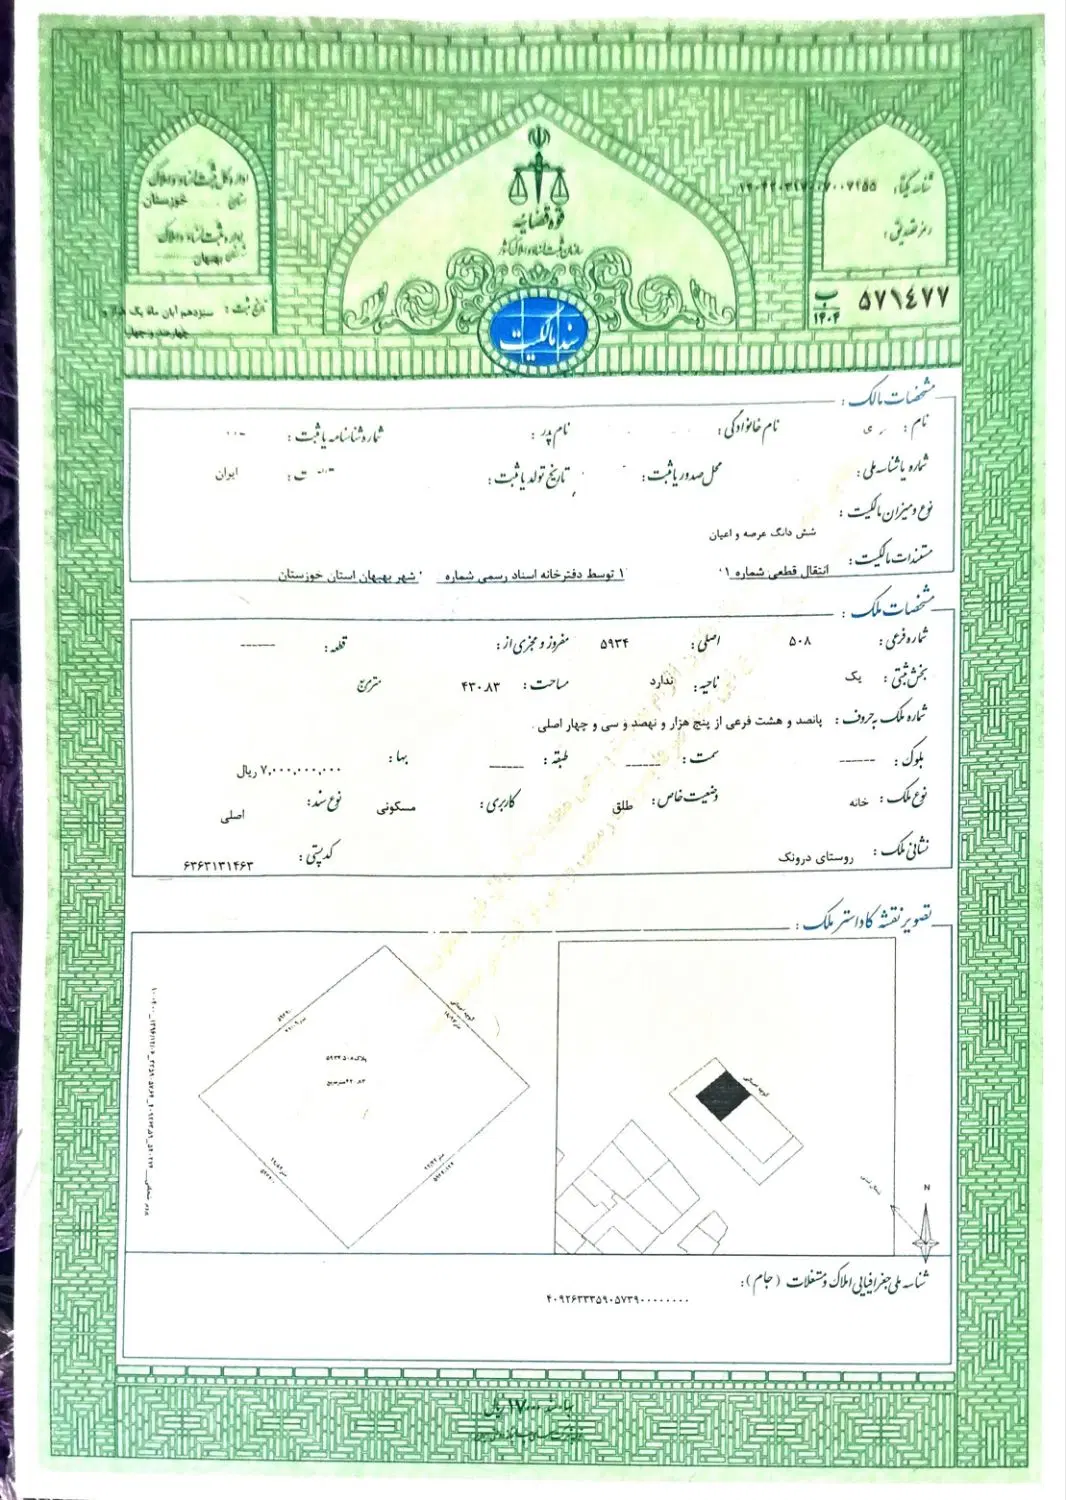 قوه قضائیه
سازمان ثبت اسناد و املاک کشور
سند مالکیت
شناسه یکتا:
رمز تصدیق:
۵۷۱۴۷۷ ب ۱۴۰۴
اداره کل ثبت اسناد و املاک
استان خوزستان
اداره ثبت اسناد و املاک
بهبهان
تاریخ ثبت: سیزدهم آبان ماه یک هزار و
چهارصد و چهار
مشخصات مالک:
نام: نام خانوادگی: نام پدر: شماره شناسنامه یا ثبت:
شماره یا شناسه ملی: محل صدور یا ثبت: تاریخ تولد یا ثبت: ایران
نوع و میزان مالکیت:
شش دانگ عرصه و اعیان
مستندات مالکیت: انتقال قطعی شماره ۱ توسط دفترخانه اسناد رسمی شماره شهر بهبهان استان خوزستان
مشخصات ملک:
شماره فرعی: ۵۰۸ اصلی: ۵۹۳۴ مفروز و مجزی از: قطعه: ------
بخش ثبتی: یک ناحیه: ندارد مساحت: ۴۳۰.۸۳ مترمربع
شماره ملک به حروف: پانصد و هشت فرعی از پنج هزار و نهصد و سی و چهار اصلی .
بلوک: ------ سمت: ------ طبقه: ------ بها: ۷,۰۰۰,۰۰۰,۰۰۰ ریال
نوع ملک: خانه وضعیت خاص: طلق کاربری: مسکونی نوع سند: اصلی
نشانی ملک: روستای درونک کدپستی: ۶۳۶۳۱۳۱۴۶۳
تصویر نقشه کاداستر ملک:
کوچه احداثی
پلاک ۵۹۳۴.۵۰۸
کوچه احداثی
N
شناسه ملی جغرافیایی املاک و مستغلات (جام):
۴۰۹۲۶۳۳۳۵۹۰۵۷۳۹۰۰۰۰۰۰۰۰
بهاء سند ۱۷۰۰۰ ریال